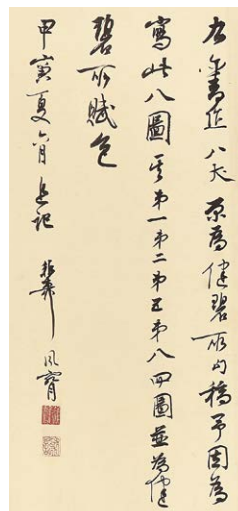 右畫近八大原為健碧所勾稿予因為
寫此八圖其第一第二第五第八四圖並為健
碧所賦色
甲寅夏六月追記